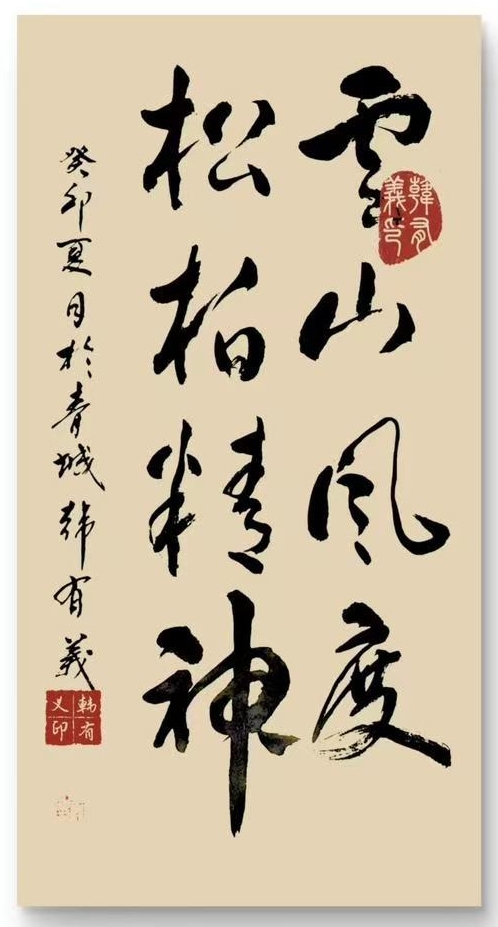 雲山風度
韓有義印
松柏精神
癸卯夏月於青城韩有義
韩有义印